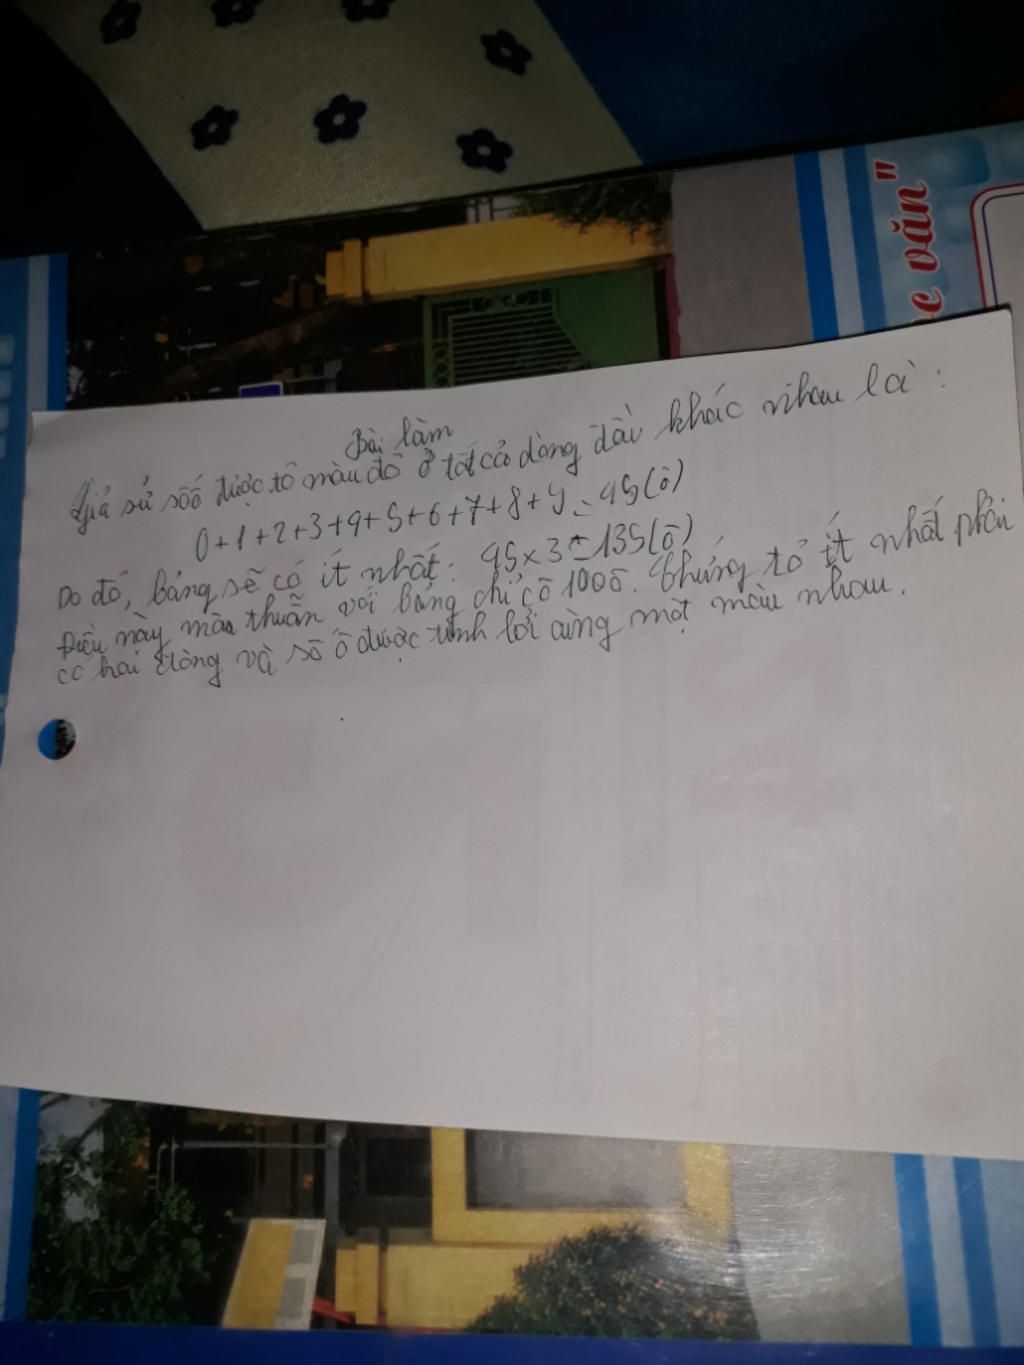 c văn"
Bài làm
Giả sử số ô được tô màu đỏ ở tất cả dòng đều khác nhau là:
0+1+2+3+4+5+6+7+8+9=45(ô)
Do đó, bảng sẽ có ít nhất: 45×3=135(ô)
Điều này mâu thuẫn với bảng chỉ có 100ô. Chứng tỏ ít nhất phải
có hai dòng và số ô được tính bởi cùng một màu nhau.